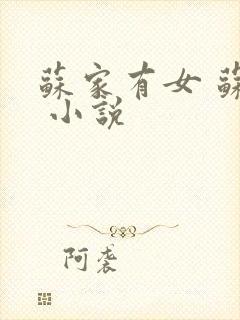 蘇家有女 蘇
小說
阿裘